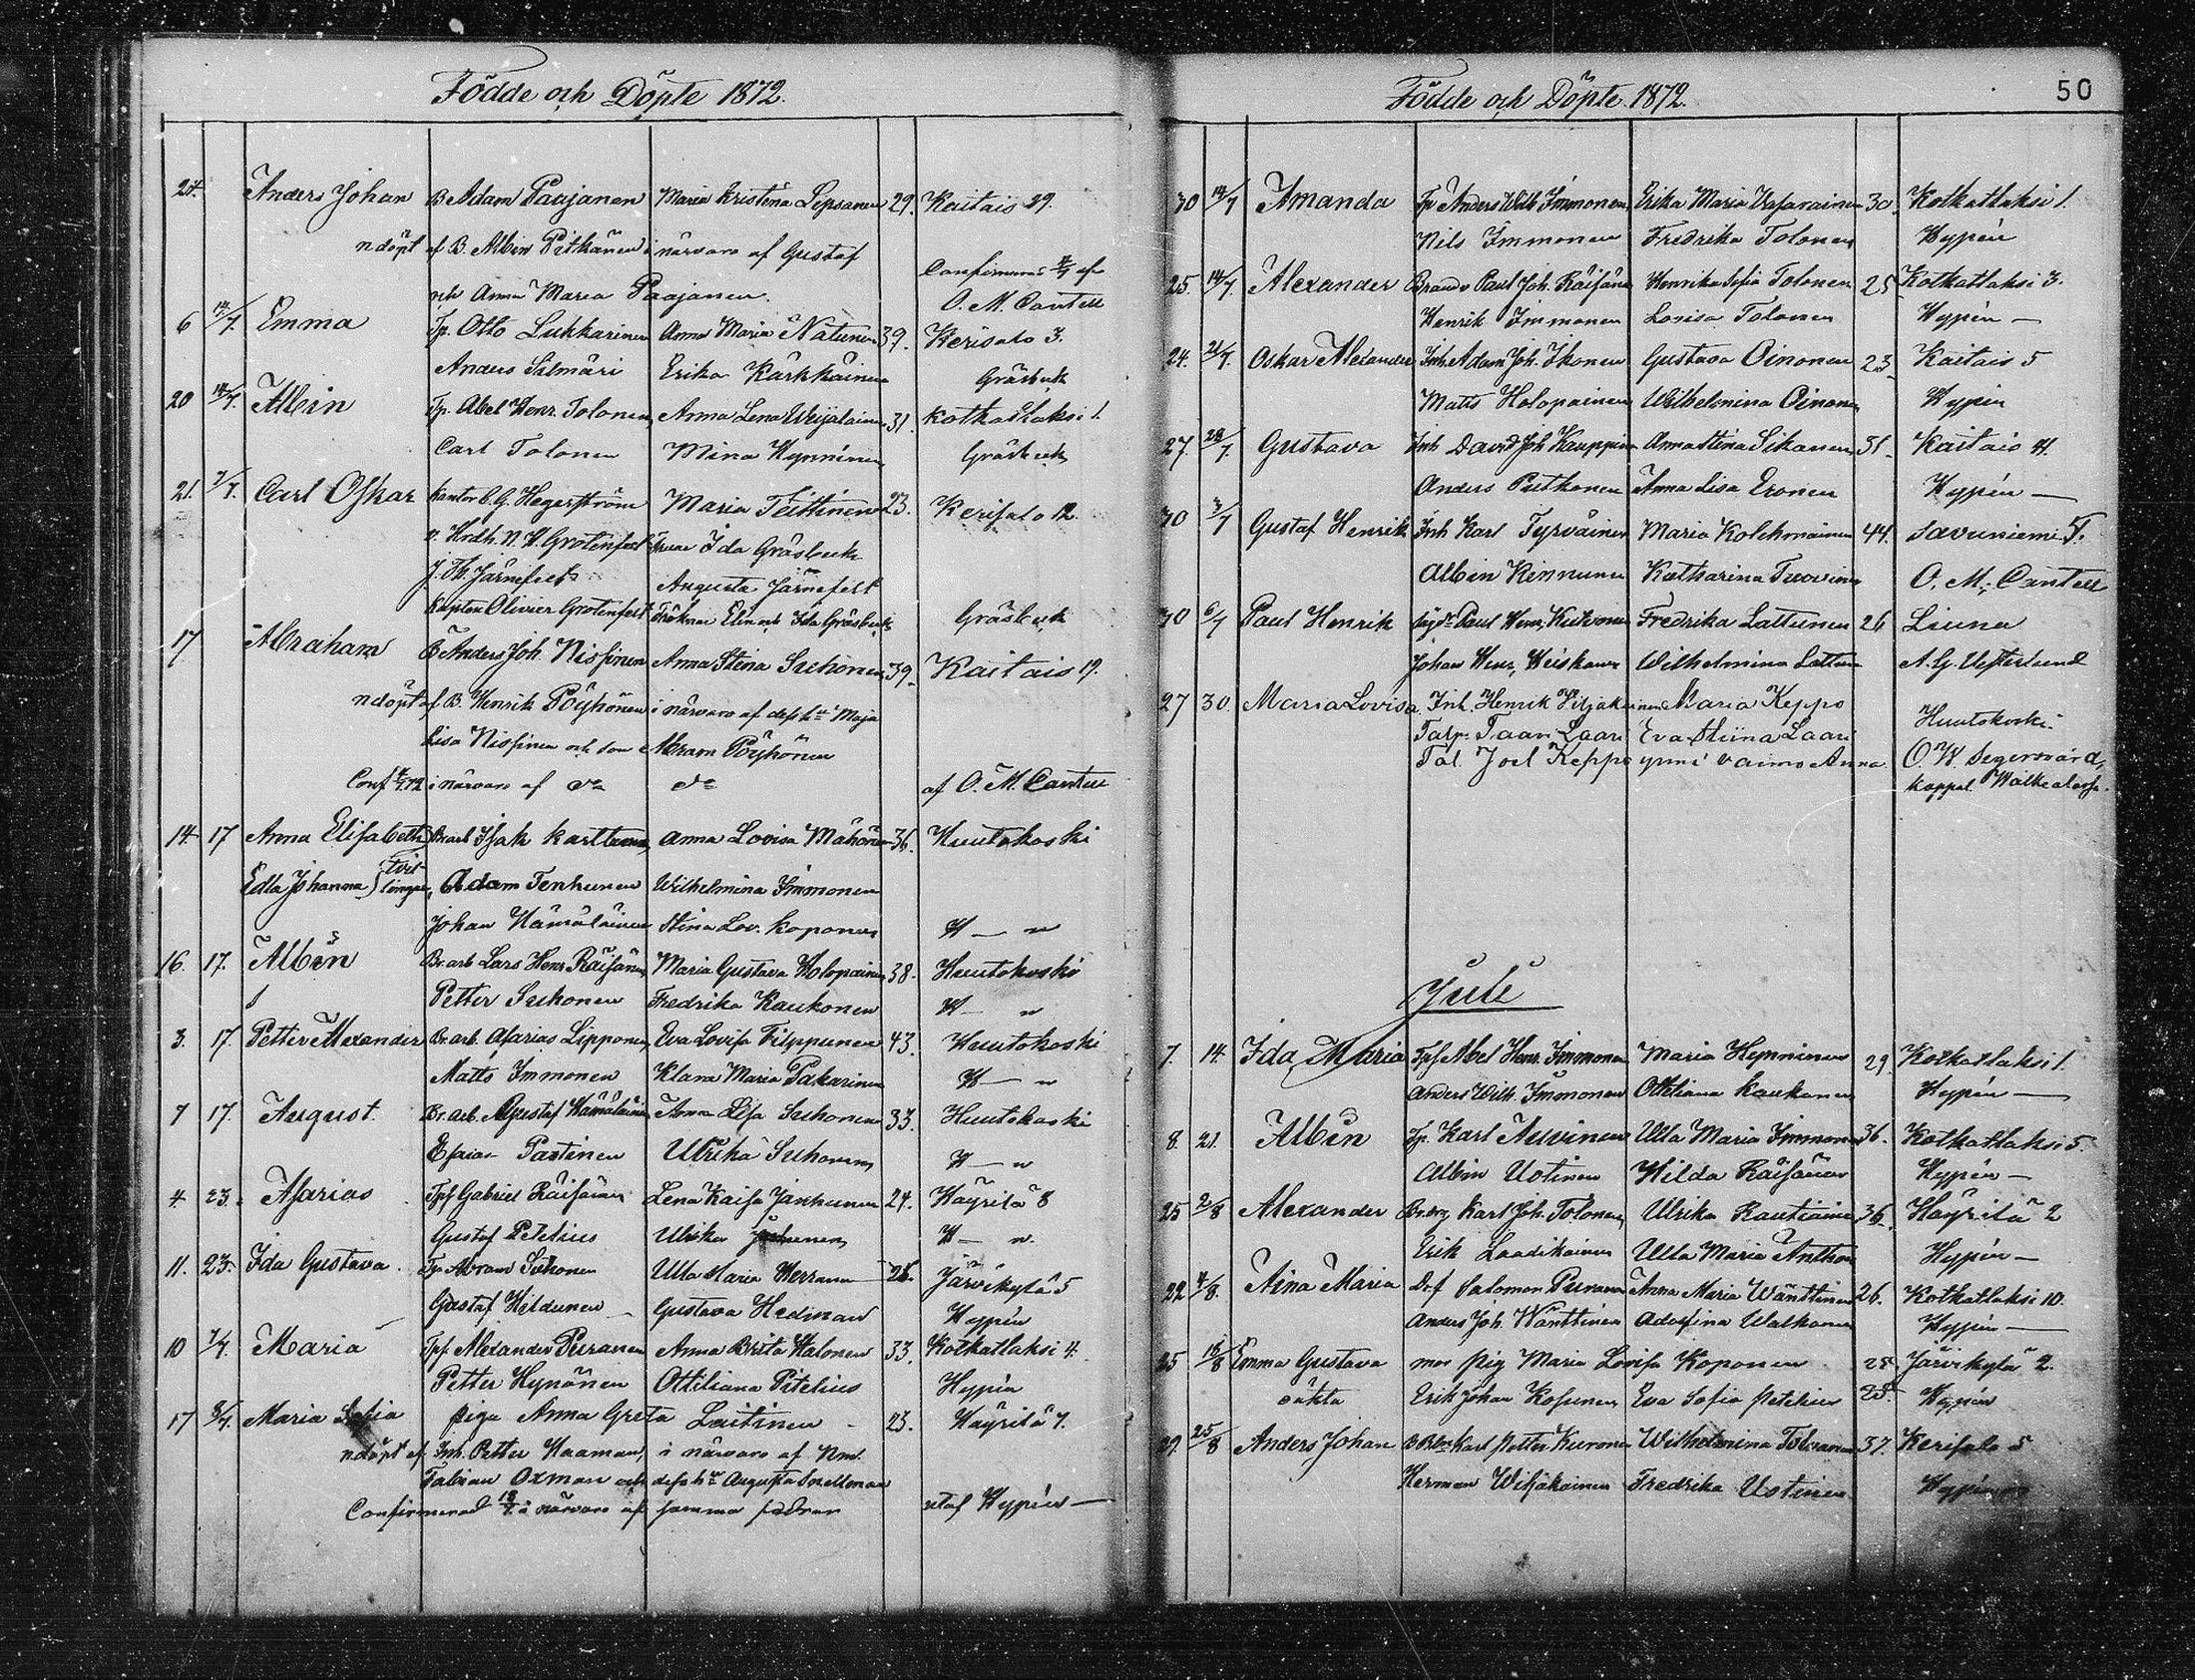 Födde och Döpte 1872.
24. Anders Johan B Adam Paajanen Maria Kristina Lepsanen 29. Kaitais 29.
ndöpt af B. Albin Pitkänen i närvaro af Gustaf
och Anna Maria Paajanen. Confirmerad af O. M. Cantell
6 14/7. Emma Tp. Otto Lukkarinen Anna Maria Natunen 39. Kerisalo 3.
Anders Silmäri Erika Kärkkäinen Gräsbeck
20 14/7. Albin Tp. Abel Henr. Tolonen Anna Lena Weijalainen 31. Kotkatlaksi 1.
Carl Tolonen Mina Hynninen Gräsbeck
21. 7/7. Carl Oskar Kantor C. G. Hegerström Maria Teittinen 23. Kerisalo 12.
v. Hrdh. N. H. Grotenfelt Ida Gräsbeck
J. Th. Järnefelt Augusta Järnefelt
Kapten Olivier Grotenfelt Fröknar Elin och Ida Gräsbeck Gräsbeck
17 Abraham B Anders Joh. Nissinen Anna Stina Suhonen 39. Kaitais 19.
ndöpt af B. Henrik Pöyhönen i närvaro af dess h:u Maja
Lisa Nissinen och son Abram Pöyhönen
Conf 72 i närvaro af do do af O. M. Cantell
14 17 Anna Elisabeth Br. arb Isak Karttunen Anna Lovisa Mähönen 36. Huutokoski
Edla Johanna } tvillingar, Adam Tenhunen Wilhelmina Immonen
Johan Hämäläinen Stina Lov. Koponen H — n
16. 17. Albin Br. arb Lars Henr Räisänen Maria Gustava Holopainen 38. Huutokoski
Petter Suhonen Fredrika Kaukonen H — n
3. 17. Petter Alexander Br. arb. Asarias Lipponen Eva Lovisa Filppunen 43. Huutokoski
Matts Immonen Klara Maria Pakarinen H — n
7 17. August Br. arb. Gustaf Hämäläinen Anna Lisa Suhonen 33. Huutokoski
Esaias Partinen Ulrika Suhonen H — n
4. 23. Asarias Tpf Gabriel Räisänen Lena Kaisa Janhunen 24. Häyrilä 8
Gustaf Petelius Ulrika H — n.
11. 23. Ida Gustava. Tp. Abram Suhonen Ulla Maria Herranen 28. Järvikylä 5
Gustaf Hildunen Gustava Hedman Hypén
10 7/7. Maria Tpf. Alexander Puranen Anna Brita Halonen 33. Kotkatlaksi 4.
Petter Hynönen Ottiliana Pitelius Hypén
17 8/7. Maria Sofia piga Anna Greta Laitinen 23. Häyrilä 7.
ndöpt af Inh. Petter Haaman, i närvaro af Nmd.
Fabian Oxman och dess h:u Augusta Snellman
Confirmerad 18/7. i närvaro af samma faddrar utaf Hypén —
Födde och Döpte 1872. 50
30 14/7 Amanda Tp Anders Wilh Immonen Erika Maria 30. Kotkatlaksi 1.
Nils Immonen Fredrika Tolonen Hypén
25. 14/7. Alexander Paul Joh. Räisänen Henrika Sofia Tolonen 25 Kotkatlaksi 3.
Henrik Immonen Lovisa Tolonen Hypén —
24. 21/7. Oskar Alexander Inh. Adam Joh. Ikonen Gustava Oinonen 23. Kaitais 5
Matts Holopainen Wilhelmina Oinonen Hypén
27. 28/7. Gustava Inh David Joh Kauppinen Anna Stina Sikanen 31. Kaitais 4.
Anders Putkonen Anna Lisa Eronen Hypén —
30 3/7 Gustaf Henrik Inh Karl Tyrväinen Maria Kolehmainen 44. Savuniemi 5.
Albin Kinnunen Katharina Turovinen O. M. Cantell
30 6/7 Paul Henrik Paul Henr. Kukonen Fredrika Lattunen 26 Liuna
Johan Henr. Heiskanen Wilhelmina Lattunen A. G. Vesterlund
27 30. Maria Lovisa Inh. Henrik Viljakainen Maria Keppo Huutokoski
Talp. Taav. Laari Eva Stiina Laari O. W. Segersvärd,
Tal. Joel Keppo ynni vaimo Anna. kappal Walkealassa.
Juli
7. 14. Ida Maria Tpf Abel Henr. Immonen Maria Hynninen 29 Kotkatlaksi 1.
Anders Wilh. Immonen Ottiliana Kaukanen Hypén —
8. 21. Albin Tp. Karl Auvinen Ulla Maria Immonen 36. Kotkatlaksi 5.
Albin Ustinen Hilda Räisänen Hypén —
25 2/8 Alexander Karl Joh. Tolonen Ulrika Rautiainen 36. Häyrilä 2
Erik Laadikainen Ulla Maria Hypén —
22 4/8. Aina Maria Drf Salomon Puranen Anna Maria Wänttinen 26. Kotkatlaksi 10.
Anders Joh. Wänttinen Adolfina Walkonen Hypén —
25 18/8 Emma Gustava mor pig Maria Lovisa Koponen 28 Järvikylä 2.
oäkta Erik Johan Kosunen Eva Sofia Petelius 28 Hypén
29. 25/8 Anders Johan Karl Petter Kuronen Wilhelmina Tolvanen 37. Kerisalo 5
Herman Wiljakainen Fredrika Ustinen Hypén